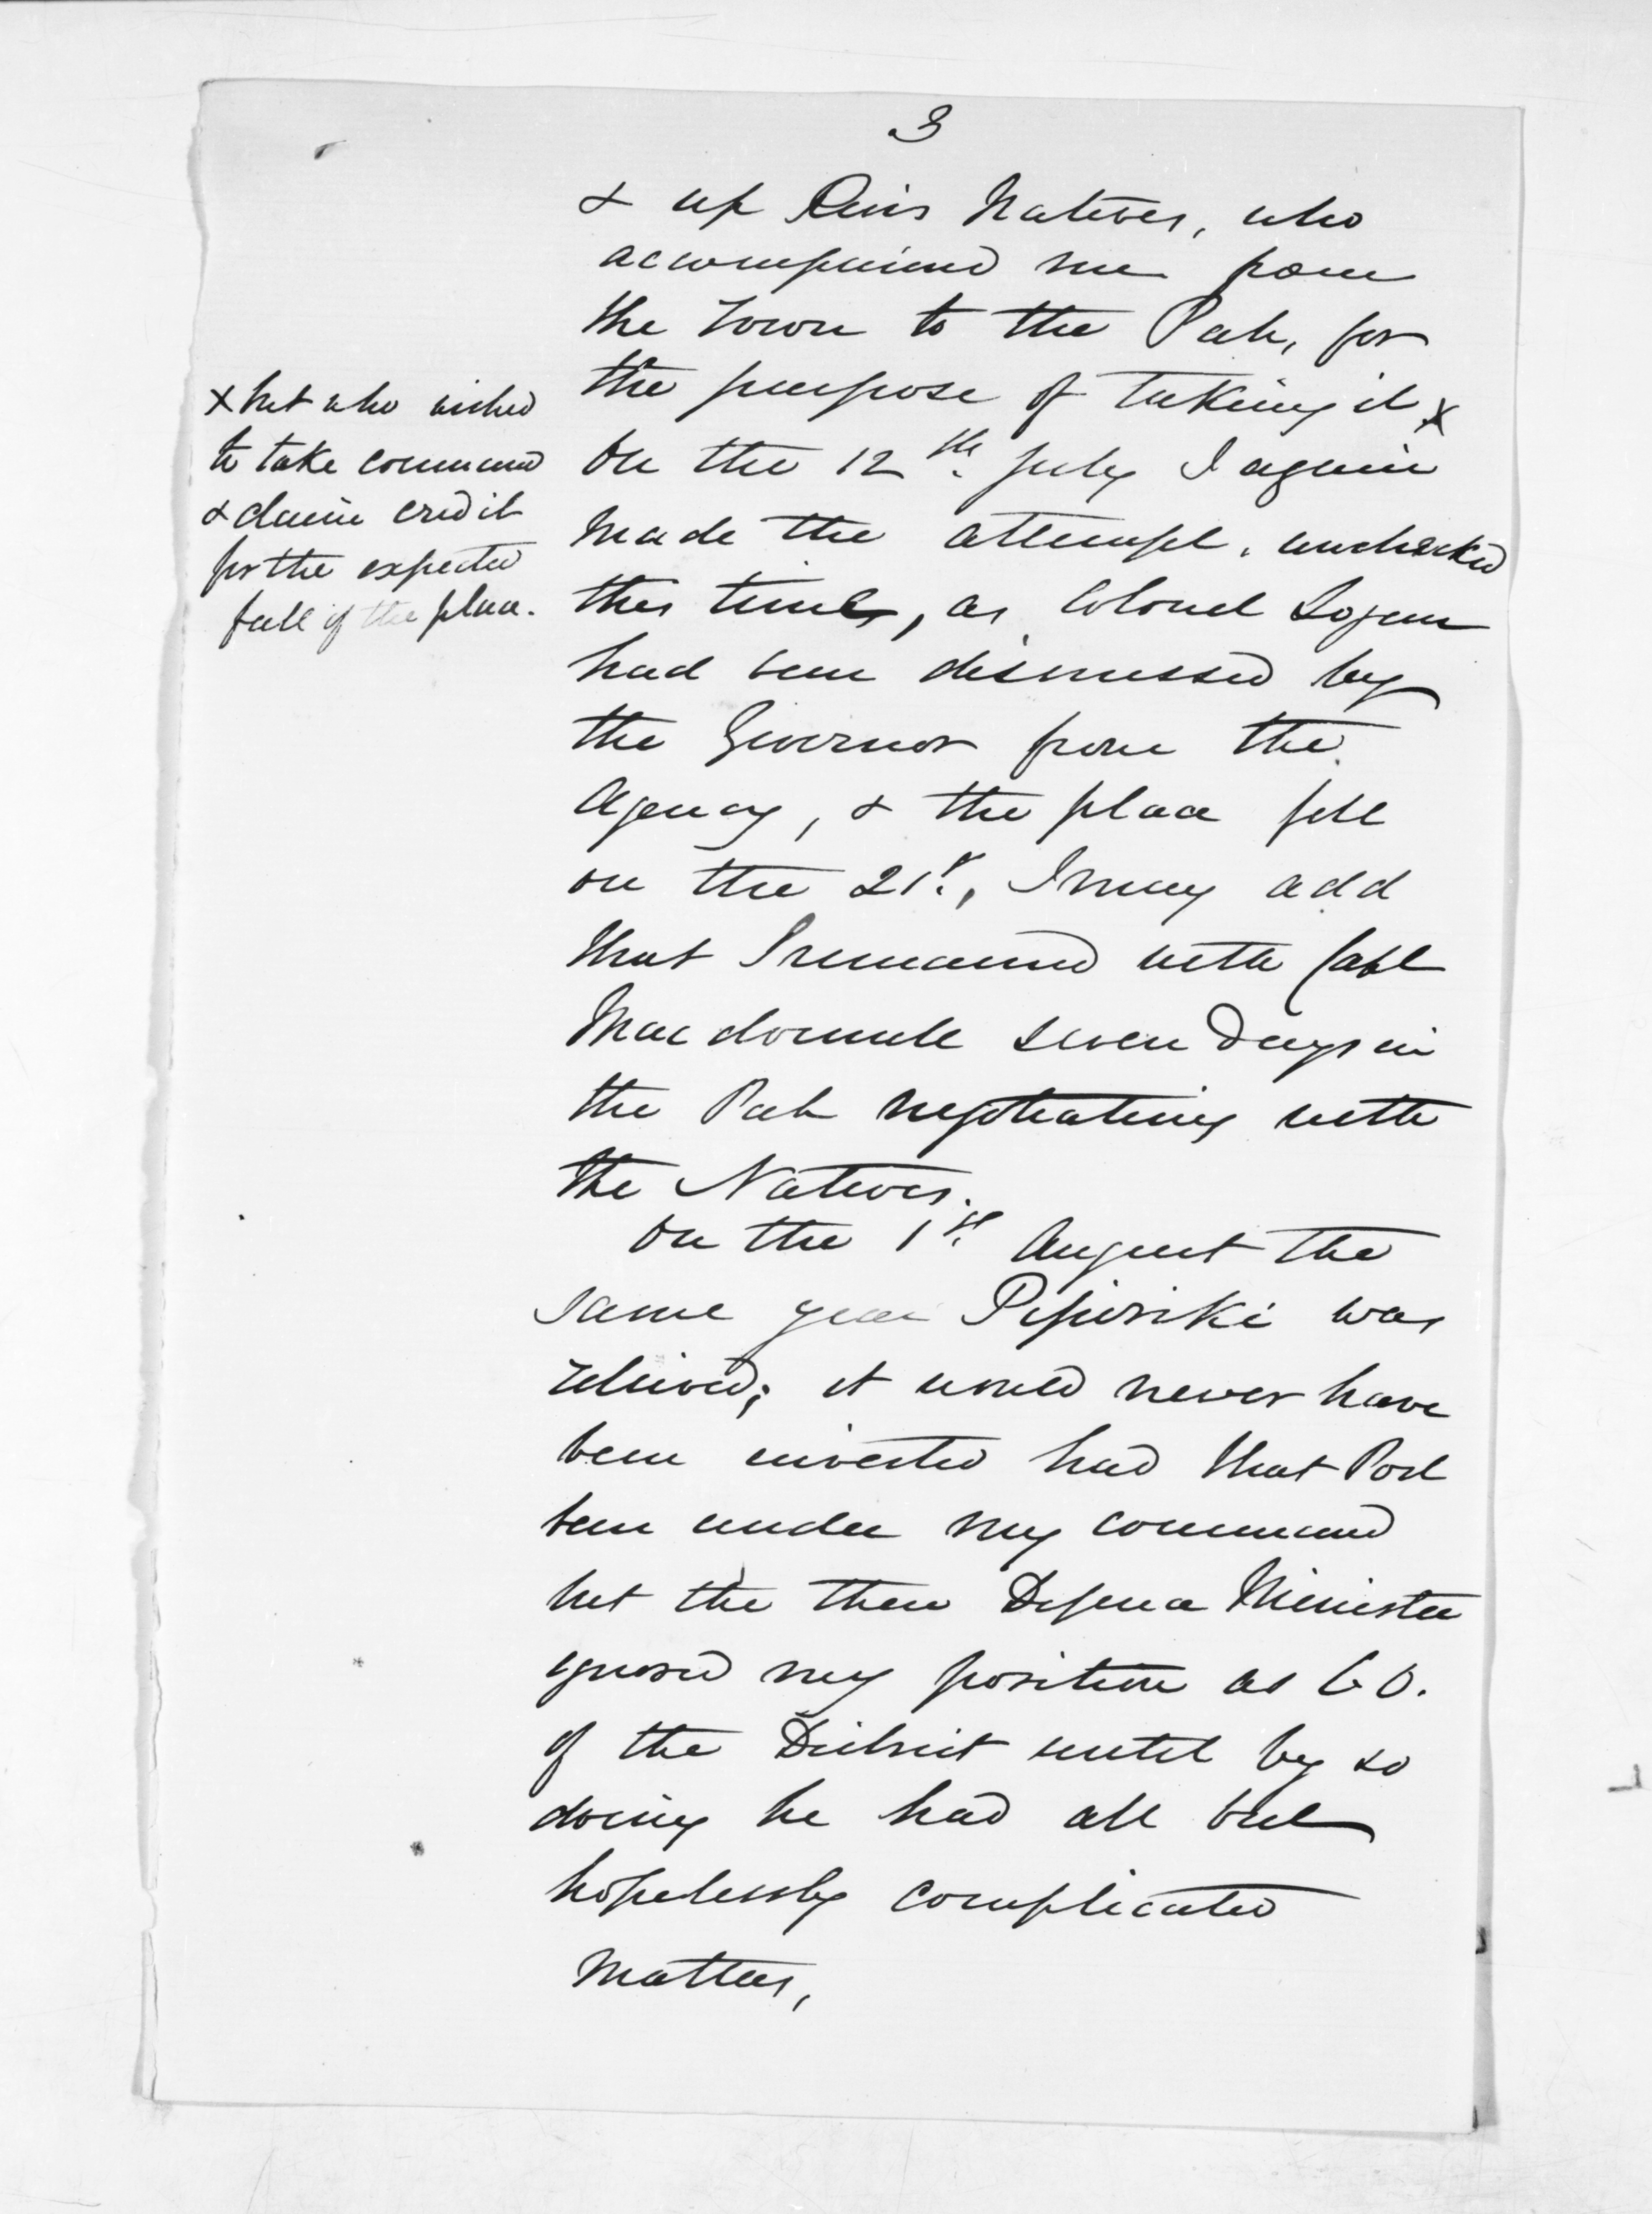 3
& up River Natives, who
accompanied me from
the Town to the Pah, for
the purpose of taking it x
x but who wished
to take command
& claim credit
for the expected
fall of the place.
On the 12th. July I again
made the attempt, unchecked
this time, as Colonel Logan
had been dismissed by
the Governor from the
Agency, & the place fell
on the 21st., I may add
that I remained with Capt
Macdonnell seven days in
the Pah negotiating with
the Natives.
On the 1st. August the
same year Pipiriki was
relieved; it would never have
been invested had that Post
been under my command
but the then Defence Minister
ignored my position as C O.
of the District until by so
doing he had all but
hopelessly complicated
matters,